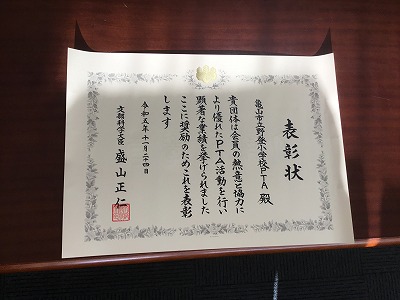 表彰状
亀山市立野登小学校PTA 殿
貴団体は会員の熱意と協力に
より優れたPTA活動を行い
顕著な業績を挙げられました
ここに奨励のためこれを表彰
します
令和五年十一月二十四日
文部科学大臣 盛山正仁